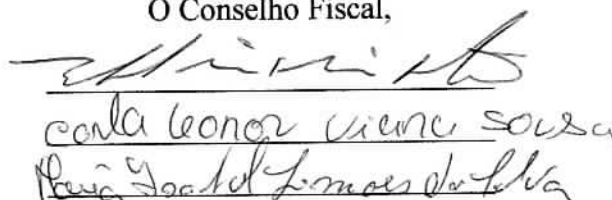 O Conselho Fiscal,
Carla Leonor Viana Sousa
Maria Isabel Simões da Silva